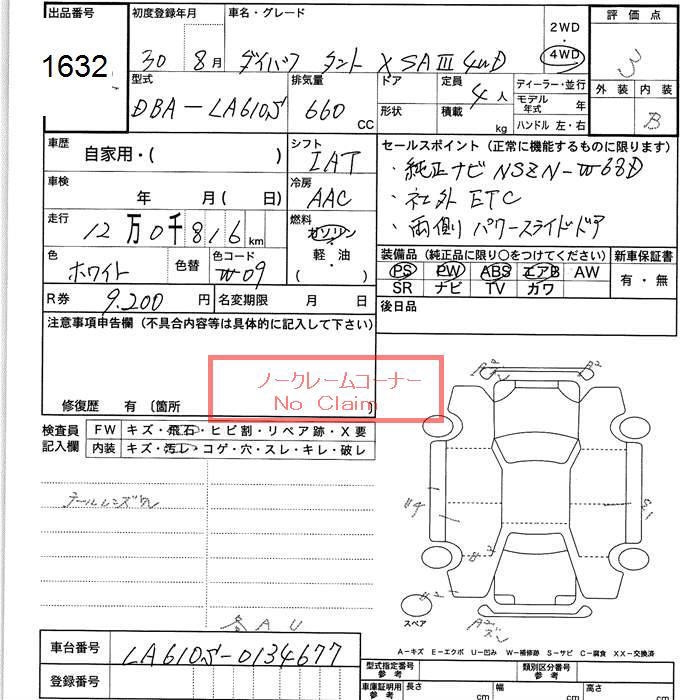 出品番号 初度登録年月 車名・グレード 2WD 評価点
1632 30 8月 ダイハツ タント X SAⅢ 4WD 4WD 3
型式 排気量 ドア 定員 ディーラー・並行 外装 内装
DBA-LA610S 660 CC 4人 モデル年式 B
形状 積載 kg ハンドル 左・右
車歴 シフト セールスポイント(正常に機能するものに限ります)
自家用・( ) IAT ・純正ナビ NSZN-W68D
車検 冷房 ・社外 ETC
年 月( 日) AAC ・両側パワースライドドア
走行 燃料
12万0千816km ガソリン
軽・油
( )
装備品(純正品に限り○をつけてください) 新車保証書
色 色替 色コード PS PW ABS エアB AW 有・無
ホワイト W09 SR ナビ TV カワ
R券 9.200円 名変期限 月 日 後日品
注意事項申告欄(不具合内容等は具体的に記入して下さい)
ノークレームコーナー
No Claim
修復歴 有〔箇所
検査員 FW キズ・飛石・ヒビ割・リペア跡・X要
記入欄 内装 キズ・汚レ・コゲ・穴・スレ・キレ・破レ
テールレンズワレ
スペア
A U
A-キズ E-エクボ U-凹み W-補修跡 S-サビ C-腐食 XX-交換済
車台番号 LA610S-0134677 型式指定番号 参考 類別区分番号 参考
登録番号 車庫証明用 参考 長さ cm 幅 cm 高さ cm